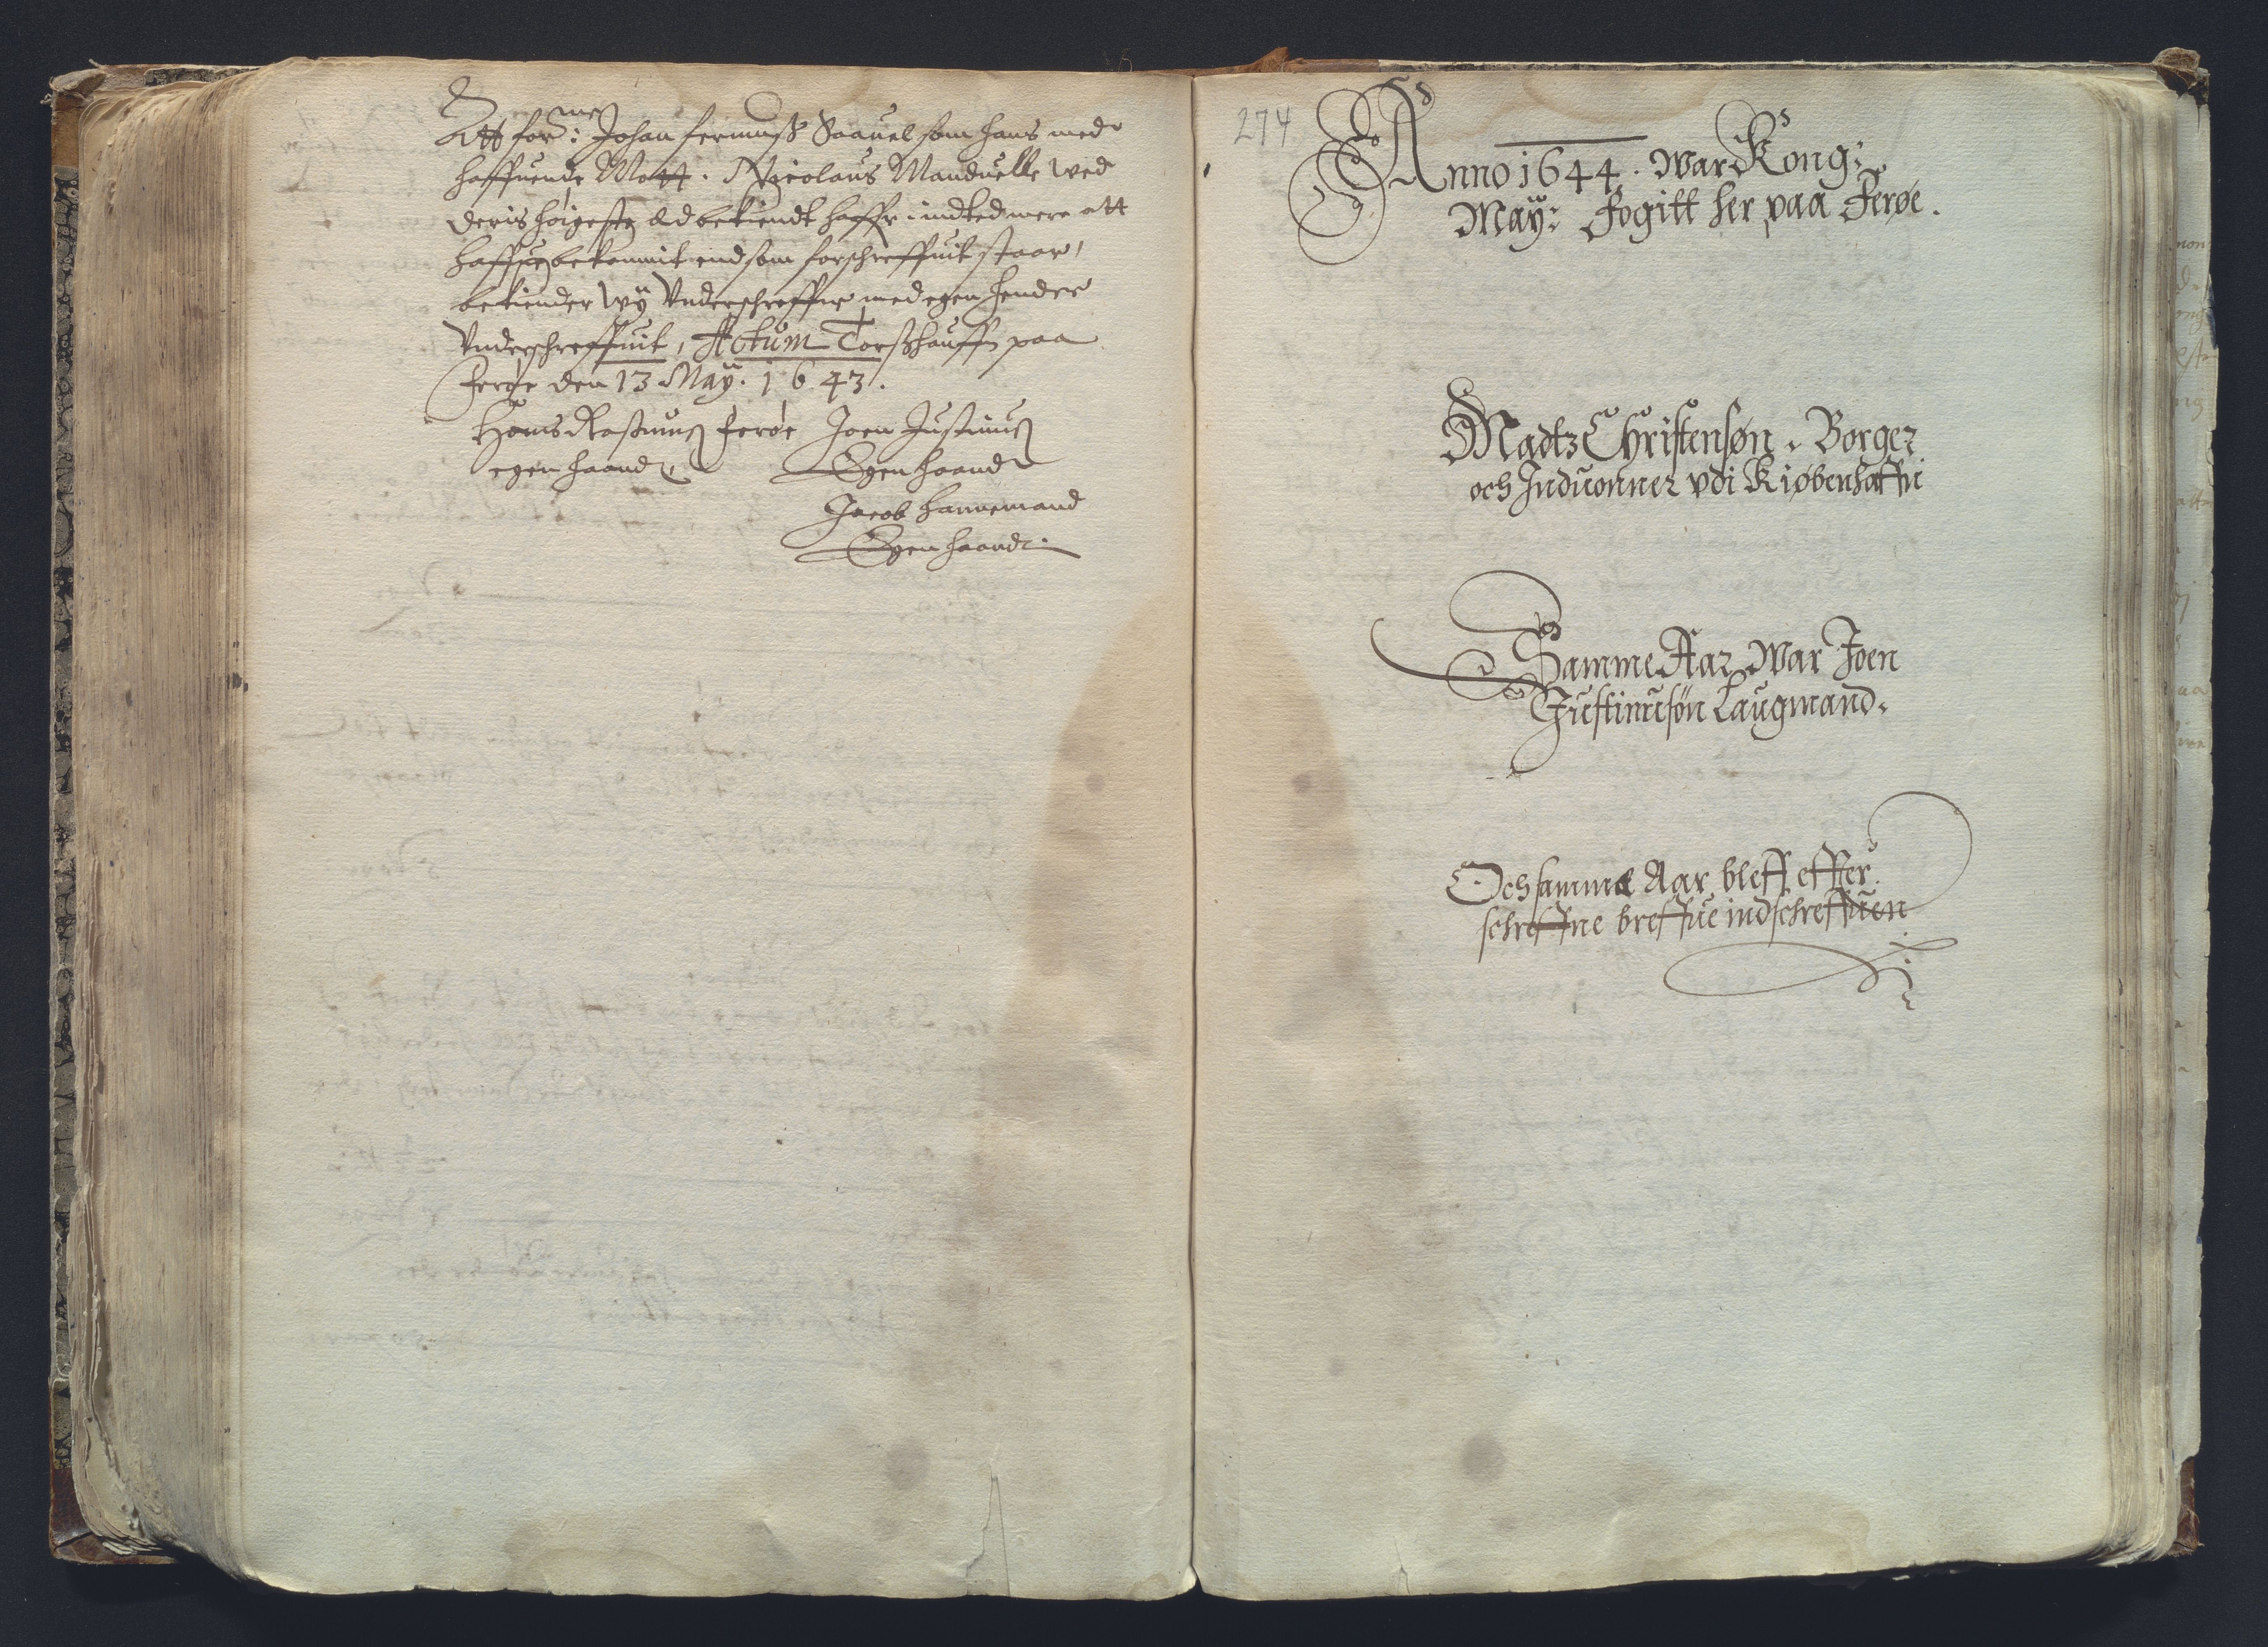 Att for:ne Johan fermuss Saauel som hans med
haffuende Matt. Nicolaus Manduelle wed
deris høigeste Ed bekiendt haffr indted mere att
haffue bekommit end som forschreffuit staar,
bekiender Wÿ Underschreffne med egen hender
Underschreffuit, Actum Torsshauffn paa
Ferøe den 13 Maÿ. 1643.
Hans Rasmus Ferøe
egen haand
Joen Justinus
Egen haand
Jacob Hannemand
Egen haand.
274
Anno 1644. War Kong:
Maÿ: Fogitt her paa Ferøe.
Madtz Christensøn, Borger
och Induonner udi Kiøbenhaffn
Samme Aar War Joen
Justinusøn Laugmand.
Och samme Aar bleff effter
schreffne breffue indschreffuen